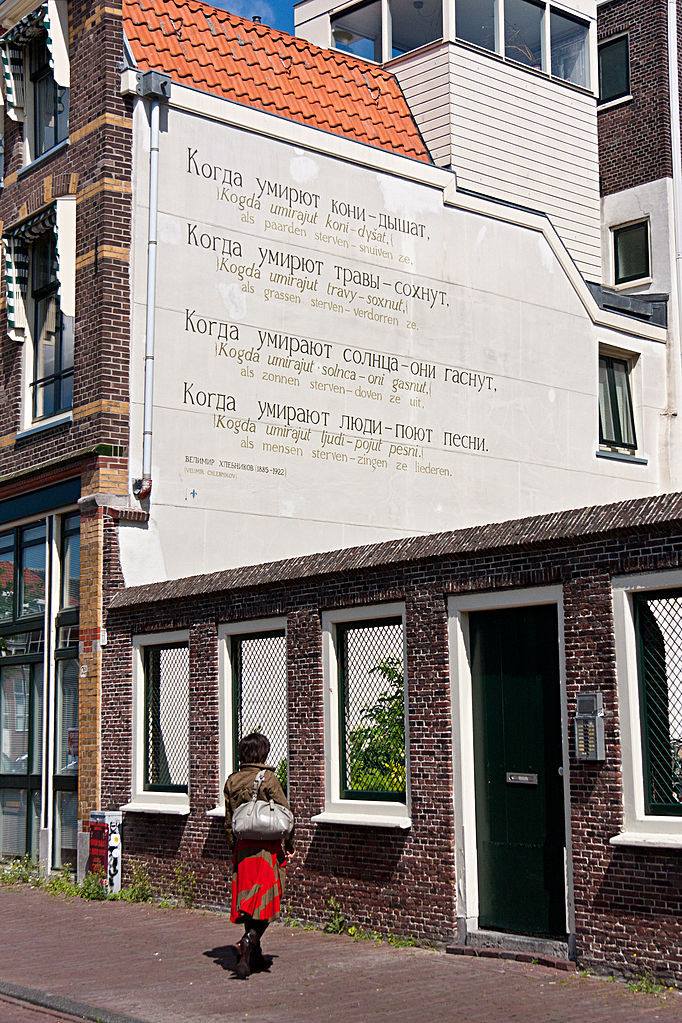 Когда умирют кони–дышат,
Kogda umirajut koni–dyšat,
als paarden sterven–snuiven ze.
Когда умирют травы–сохнут.
Kogda umirajut travy–soxnut,
als grassen sterven–verdorren ze.
Когда умирают солнца–они гаснут,
Kogda umirajut solnca–oni gasnut,
als zonnen sterven–doven ze uit.
Когда умирают люди–поют песни.
Kogda umirajut ljudi–pojut pesni.
als mensen sterven–zingen ze liederen.
ВЕЛИМИР ХЛЕБНИКОВ (1885-1922)
(VELIMIR CHLEBNIKOV)